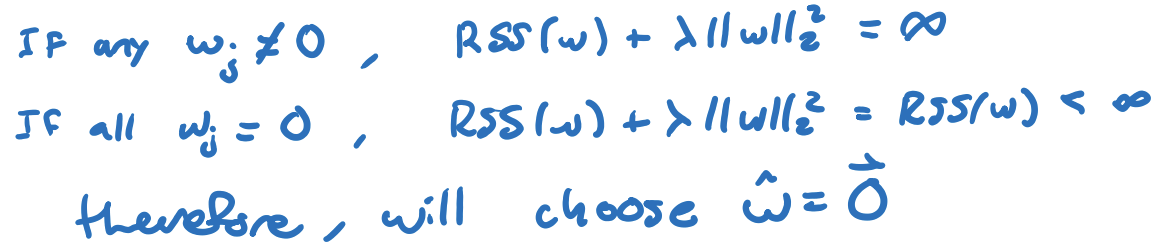 If any wⱼ ≠ 0, RSS(w) + λ||w||₂² = ∞
If all wⱼ = 0, RSS(w) + λ||w||₂² = RSS(w) < ∞
therefore, will choose ŵ = 0⃗